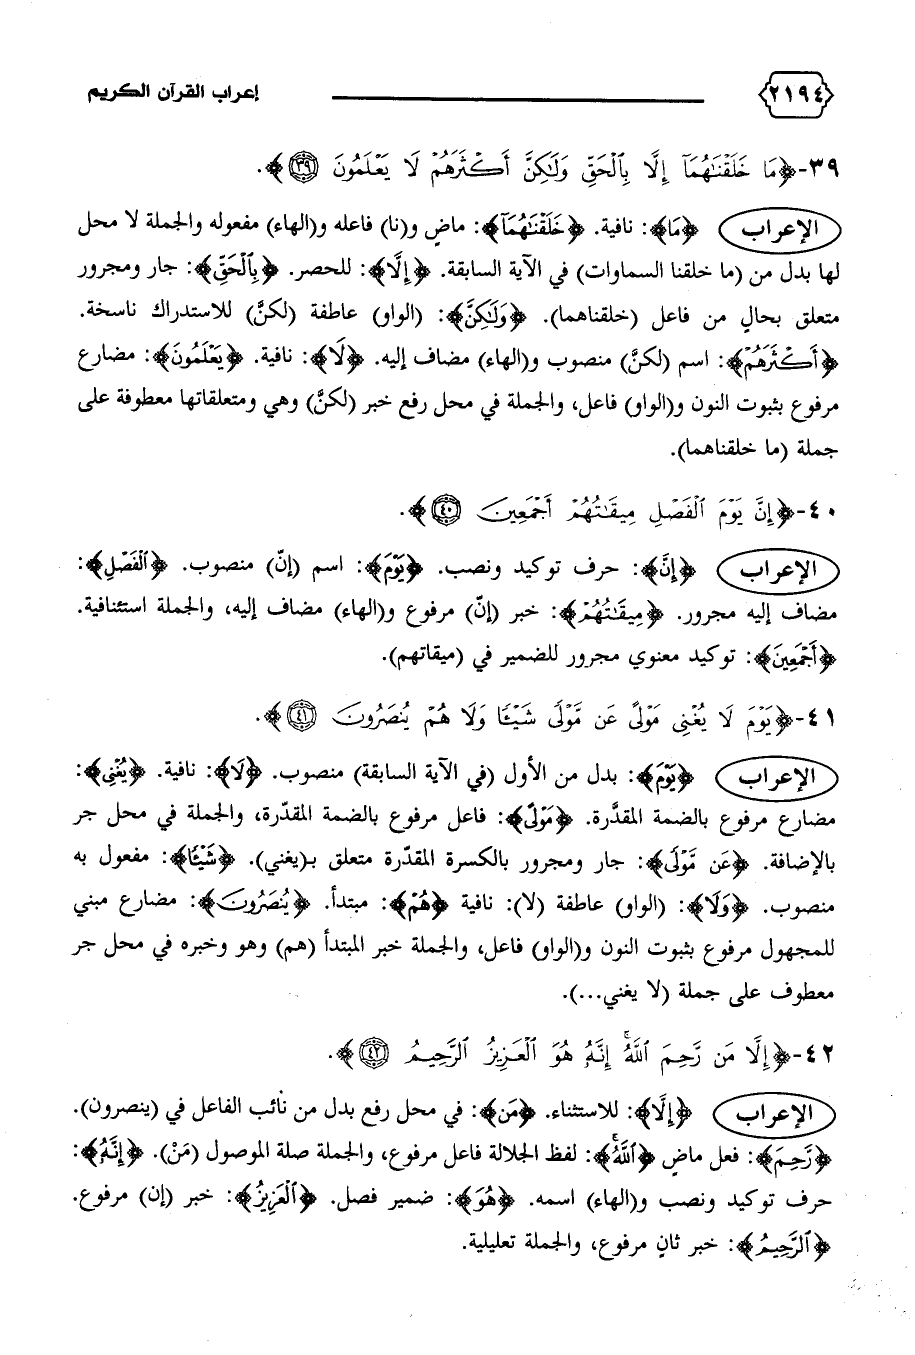 ٢١٩٤ إعراب القرآن الكريم
٣٩-﴿مَا خَلَقْنَٰهُمَآ إِلَّا بِٱلْحَقِّ وَلَٰكِنَّ أَكْثَرَهُمْ لَا يَعْلَمُونَ ٣٩﴾.
الإعراب ﴿مَا﴾: نافية. ﴿خَلَقْنَٰهُمَآ﴾: ماضٍ و(نا) فاعله و(الهاء) مفعوله والجملة لا محل
لها بدل من (ما خلقنا السماوات) في الآية السابقة. ﴿إِلَّا﴾: للحصر. ﴿بِٱلْحَقِّ﴾: جار ومجرور
متعلق بحالٍ من فاعل (خلقناهما). ﴿وَلَٰكِنَّ﴾: (الواو) عاطفة (لكنَّ) للاستدراك ناسخة.
﴿أَكْثَرَهُمْ﴾: اسم (لكنَّ) منصوب و(الهاء) مضاف إليه. ﴿لَا﴾: نافية. ﴿يَعْلَمُونَ﴾: مضارع
مرفوع بثبوت النون و(الواو) فاعل، والجملة في محل رفع خبر (لكنَّ) وهي ومتعلقاتها معطوفة على
جملة (ما خلقناهما).
٤٠-﴿إِنَّ يَوْمَ ٱلْفَصْلِ مِيقَٰتُهُمْ أَجْمَعِينَ ٤٠﴾.
الإعراب ﴿إِنَّ﴾: حرف توكيد ونصب. ﴿يَوْمَ﴾: اسم (إنّ) منصوب. ﴿ٱلْفَصْلِ﴾:
مضاف إليه مجرور. ﴿مِيقَٰتُهُمْ﴾: خبر (إنّ) مرفوع و(الهاء) مضاف إليه، والجملة استئنافية.
﴿أَجْمَعِينَ﴾: توكيد معنوي مجرور للضمير في (ميقاتهم).
٤١-﴿يَوْمَ لَا يُغْنِى مَوْلًى عَن مَّوْلًى شَيْـًٔا وَلَا هُمْ يُنصَرُونَ ٤١﴾.
الإعراب ﴿يَوْمَ﴾: بدل من الأول (في الآية السابقة) منصوب. ﴿لَا﴾: نافية. ﴿يُغْنِى﴾:
مضارع مرفوع بالضمة المقدَّرة. ﴿مَوْلًى﴾: فاعل مرفوع بالضمة المقدّرة، والجملة في محل جر
بالإضافة. ﴿عَن مَّوْلًى﴾: جار ومجرور بالكسرة المقدّرة متعلق بـ(يغني). ﴿شَيْـًٔا﴾: مفعول به
منصوب. ﴿وَلَا﴾: (الواو) عاطفة (لا): نافية ﴿هُمْ﴾: مبتدأ. ﴿يُنصَرُونَ﴾: مضارع مبني
للمجهول مرفوع بثبوت النون و(الواو) فاعل، والجملة خبر المبتدأ (هم) وهو وخبره في محل جر
معطوف على جملة (لا يغني...).
٤٢-﴿إِلَّا مَن رَّحِمَ ٱللَّهُ ۚ إِنَّهُۥ هُوَ ٱلْعَزِيزُ ٱلرَّحِيمُ ٤٢﴾.
الإعراب ﴿إِلَّا﴾: للاستثناء. ﴿مَن﴾: في محل رفع بدل من نائب الفاعل في (ينصرون).
﴿رَّحِمَ﴾: فعل ماضٍ ﴿ٱللَّهُ ۚ﴾: لفظ الجلالة فاعل مرفوع، والجملة صلة الموصول (مَنْ). ﴿إِنَّهُۥ﴾:
حرف توكيد ونصب و(الهاء) اسمه. ﴿هُوَ﴾: ضمير فصل. ﴿ٱلْعَزِيزُ﴾: خبر (إن) مرفوع.
﴿ٱلرَّحِيمُ﴾: خبر ثانٍ مرفوع، والجملة تعليلية.